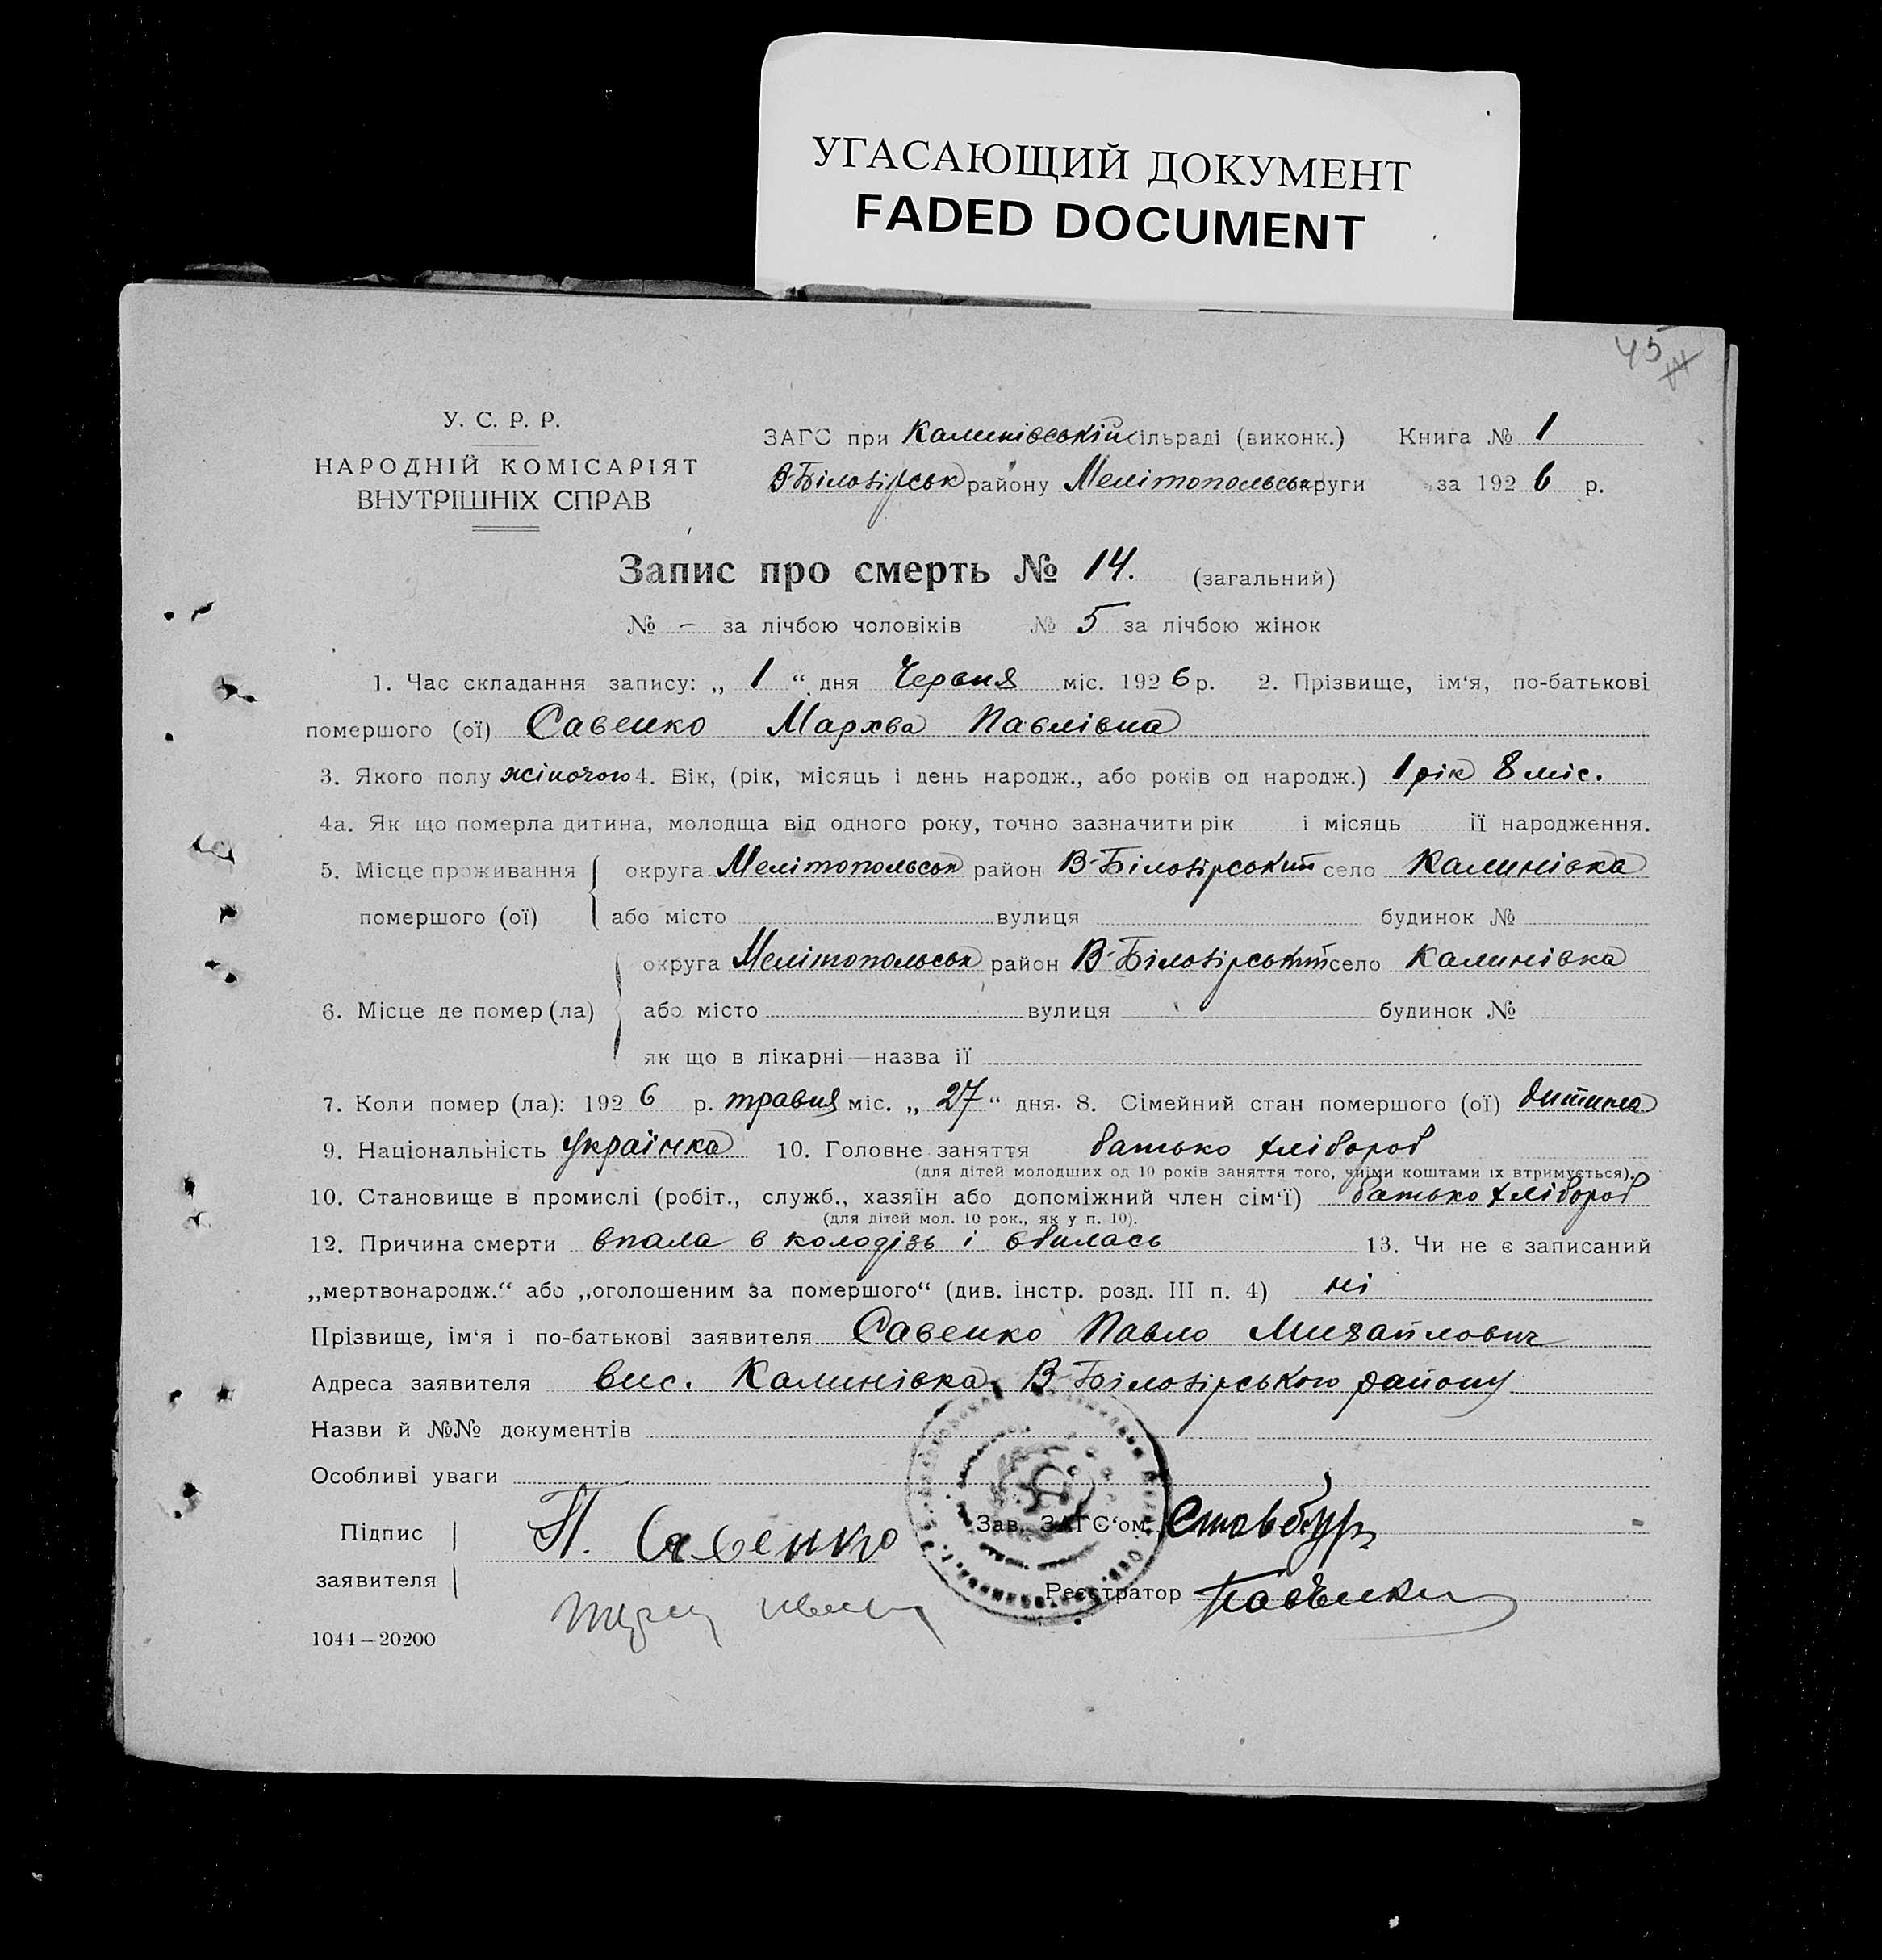 УГАСАЮЩИЙ ДОКУМЕНТ
FADED DOCUMENT
45
У. С. Р. Р.
НАРОДНІЙ КОМІСАРІЯТ
ВНУТРІШНІХ СПРАВ
ЗАГС при Калинівській сільраді (виконк.) Книга № 1
В-Білозірськ району Мелітопольськ округи за 1926 р.
Запис про смерть № 14. (загальний)
№ – за лічбою чоловіків № 5 за лічбою жінок
1. Час складання запису: „ 1 “ дня Червня міс. 1926 р. 2. Прізвище, ім‘я, по-батькові
помершого (ої) Савенко Мархва Павлівна
3. Якого полу жіночого 4. Вік, (рік, місяць і день народж., або років од народж.) 1 рік 8 міс.
4а. Як що померла дитина, молодща від одного року, точно зазначити рік і місяць її народження.
5. Місце проживання помершого (ої) округа Мелітопольськ район В-Білозірський село Калинівка
або місто вулиця будинок №
6. Місце де помер (ла) округа Мелітопольськ район В-Білозірський село Калинівка
або місто вулиця будинок №
як що в лікарні—назва її
7. Коли помер (ла): 1926 р. травня міс. „ 27 “ дня. 8. Сімейний стан помершого (ої) дитина
9. Національність українка 10. Головне заняття батько хлібороб
(для дітей молодших од 10 років заняття того, чиїми коштами їх втримується).
10. Становище в промислі (робіт., служб., хазяїн або допоміжний член сім‘ї) батько хлібороб
(для дітей мол. 10 рок., як у п. 10).
12. Причина смерти впала в колодізь і вбилась 13. Чи не є записаний
„мертвонародж.“ або „оголошеним за помершого“ (див. інстр. розд. III п. 4) ні
Прізвище, ім‘я і по-батькові заявителя Савенко Павло Михайлович
Адреса заявителя вис. Калинівка, В-Білозірського району
Назви й №№ документів
Особливі уваги
Підпис заявителя П. Савенко
Зав. ЗАГС‘ом
Реєстратор
1044—20200